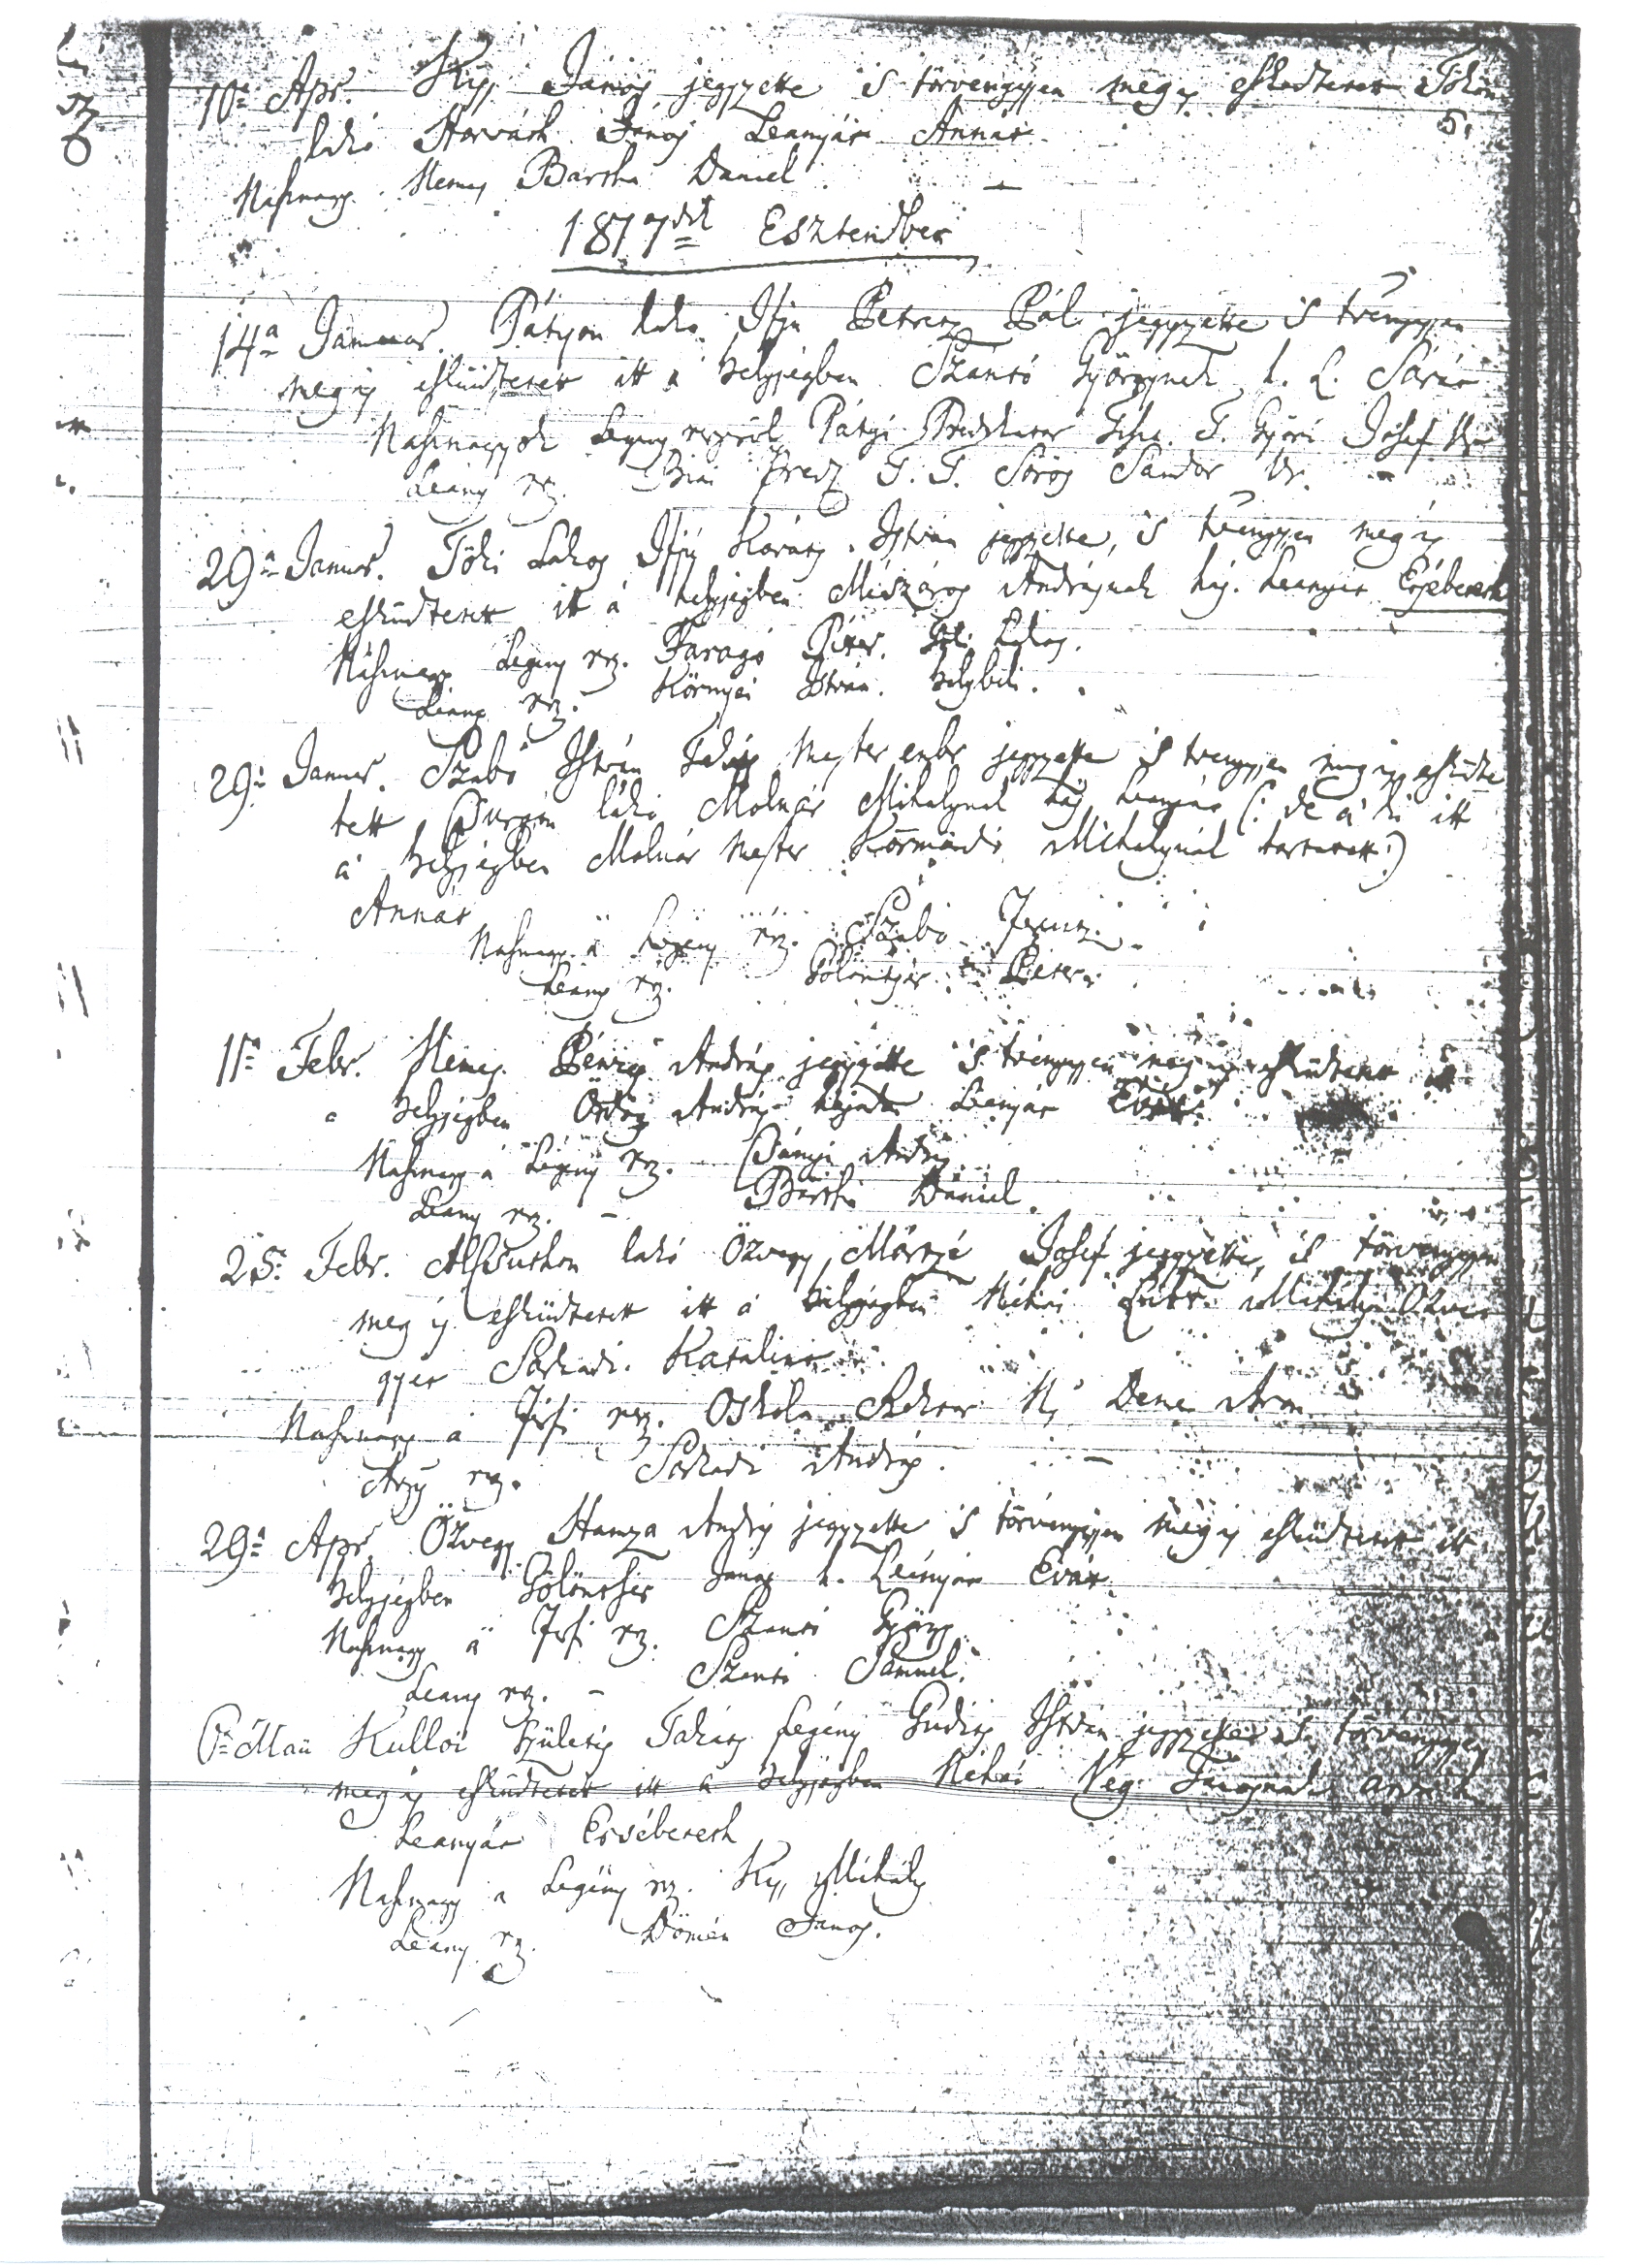 10a Apr. Kiss János jegyzette 's törvenyesen meg is esküdtetett Tökön
5.
lakó Horváth János Leanyát Annát
Násznagy. Nemes Barsha Daniel.
1817dik Esztendőben
14a Januar. Pátyon lakó Ifju Petres Pál jegyzette 's trvenyesen
meg is esküdtetett itt a helységben Szántó Györgynek h. L. Sárát
Násznagyok Legeny részről Pátyi Prédikátor Győri Jósef Ur
Leany rsz. Biai Préd. T. T. Sörös Sandor Ur. -
29a Januar. Töki Lakos Ifjú István jegyzette, 's trvenyesen meg is
esküdtetett itt a helységben Mészáros Andrásnak haj. Leanyát Ersébeteth
Násznagy Legeny rsz. Faragó Péter. Töki Lakos.
Leany rsz. Környei István. helybeli.
29a Januar. Szabó István Takáts Mester enbr jegyzette 's trvenyesen meg is esküdte
tett lakó Molnár Mihalynak haj. leanyát (: de a ki itt
a helységben Molnár Mester Körmendi Mihalynál tartatott :)
Annát
Násznagy a Legeny rsz. Szabó Ferentz.
Leany rsz. Gölöntsér Péter.
11a Febr. Nemes Pénzes András jegyzette 's trvenyesen meg is esküdtetett itt
a helységben Ördög András hajadon Leanyát Evát.
Násznagy a Legény rsz. Bányai András
Leany rsz. - Barsha Dániel.
25a Febr. AlSuthon lakó Özvegy Jósef jegyzette, 's törvenyesen
meg is esküdtetett itt a helységben Néhai Mihály Özve
gyet Sárkadi Katalint
Násznagy a Férfi rsz. Oskola Rektor N. Deme Áron
Aszy rsz. Sárkadi András.
29a Apr. Özvegy Hamza András jegyzette 's törvényesen meg is esküdtetett itt
helységben Gölöntsér János h. Leányát Evát.
Násznagy a Férfi rsz. Szántó György
Leany rsz. - Szántó Sámuel.
6a Maii Kullói születés Takáts Legény István jegyzette 's törvényesen
meg is esküdtetett itt a helységben Néhai Vég
Leanyát Ersébeteth
Násznagy a Legény rsz. Kiss Mihály
Leany rsz. Dömén János.